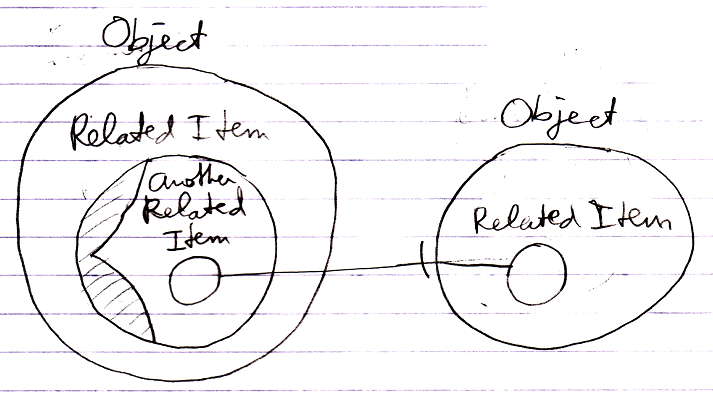 Object
Related Item
another
Related
Item
Object
Related Item